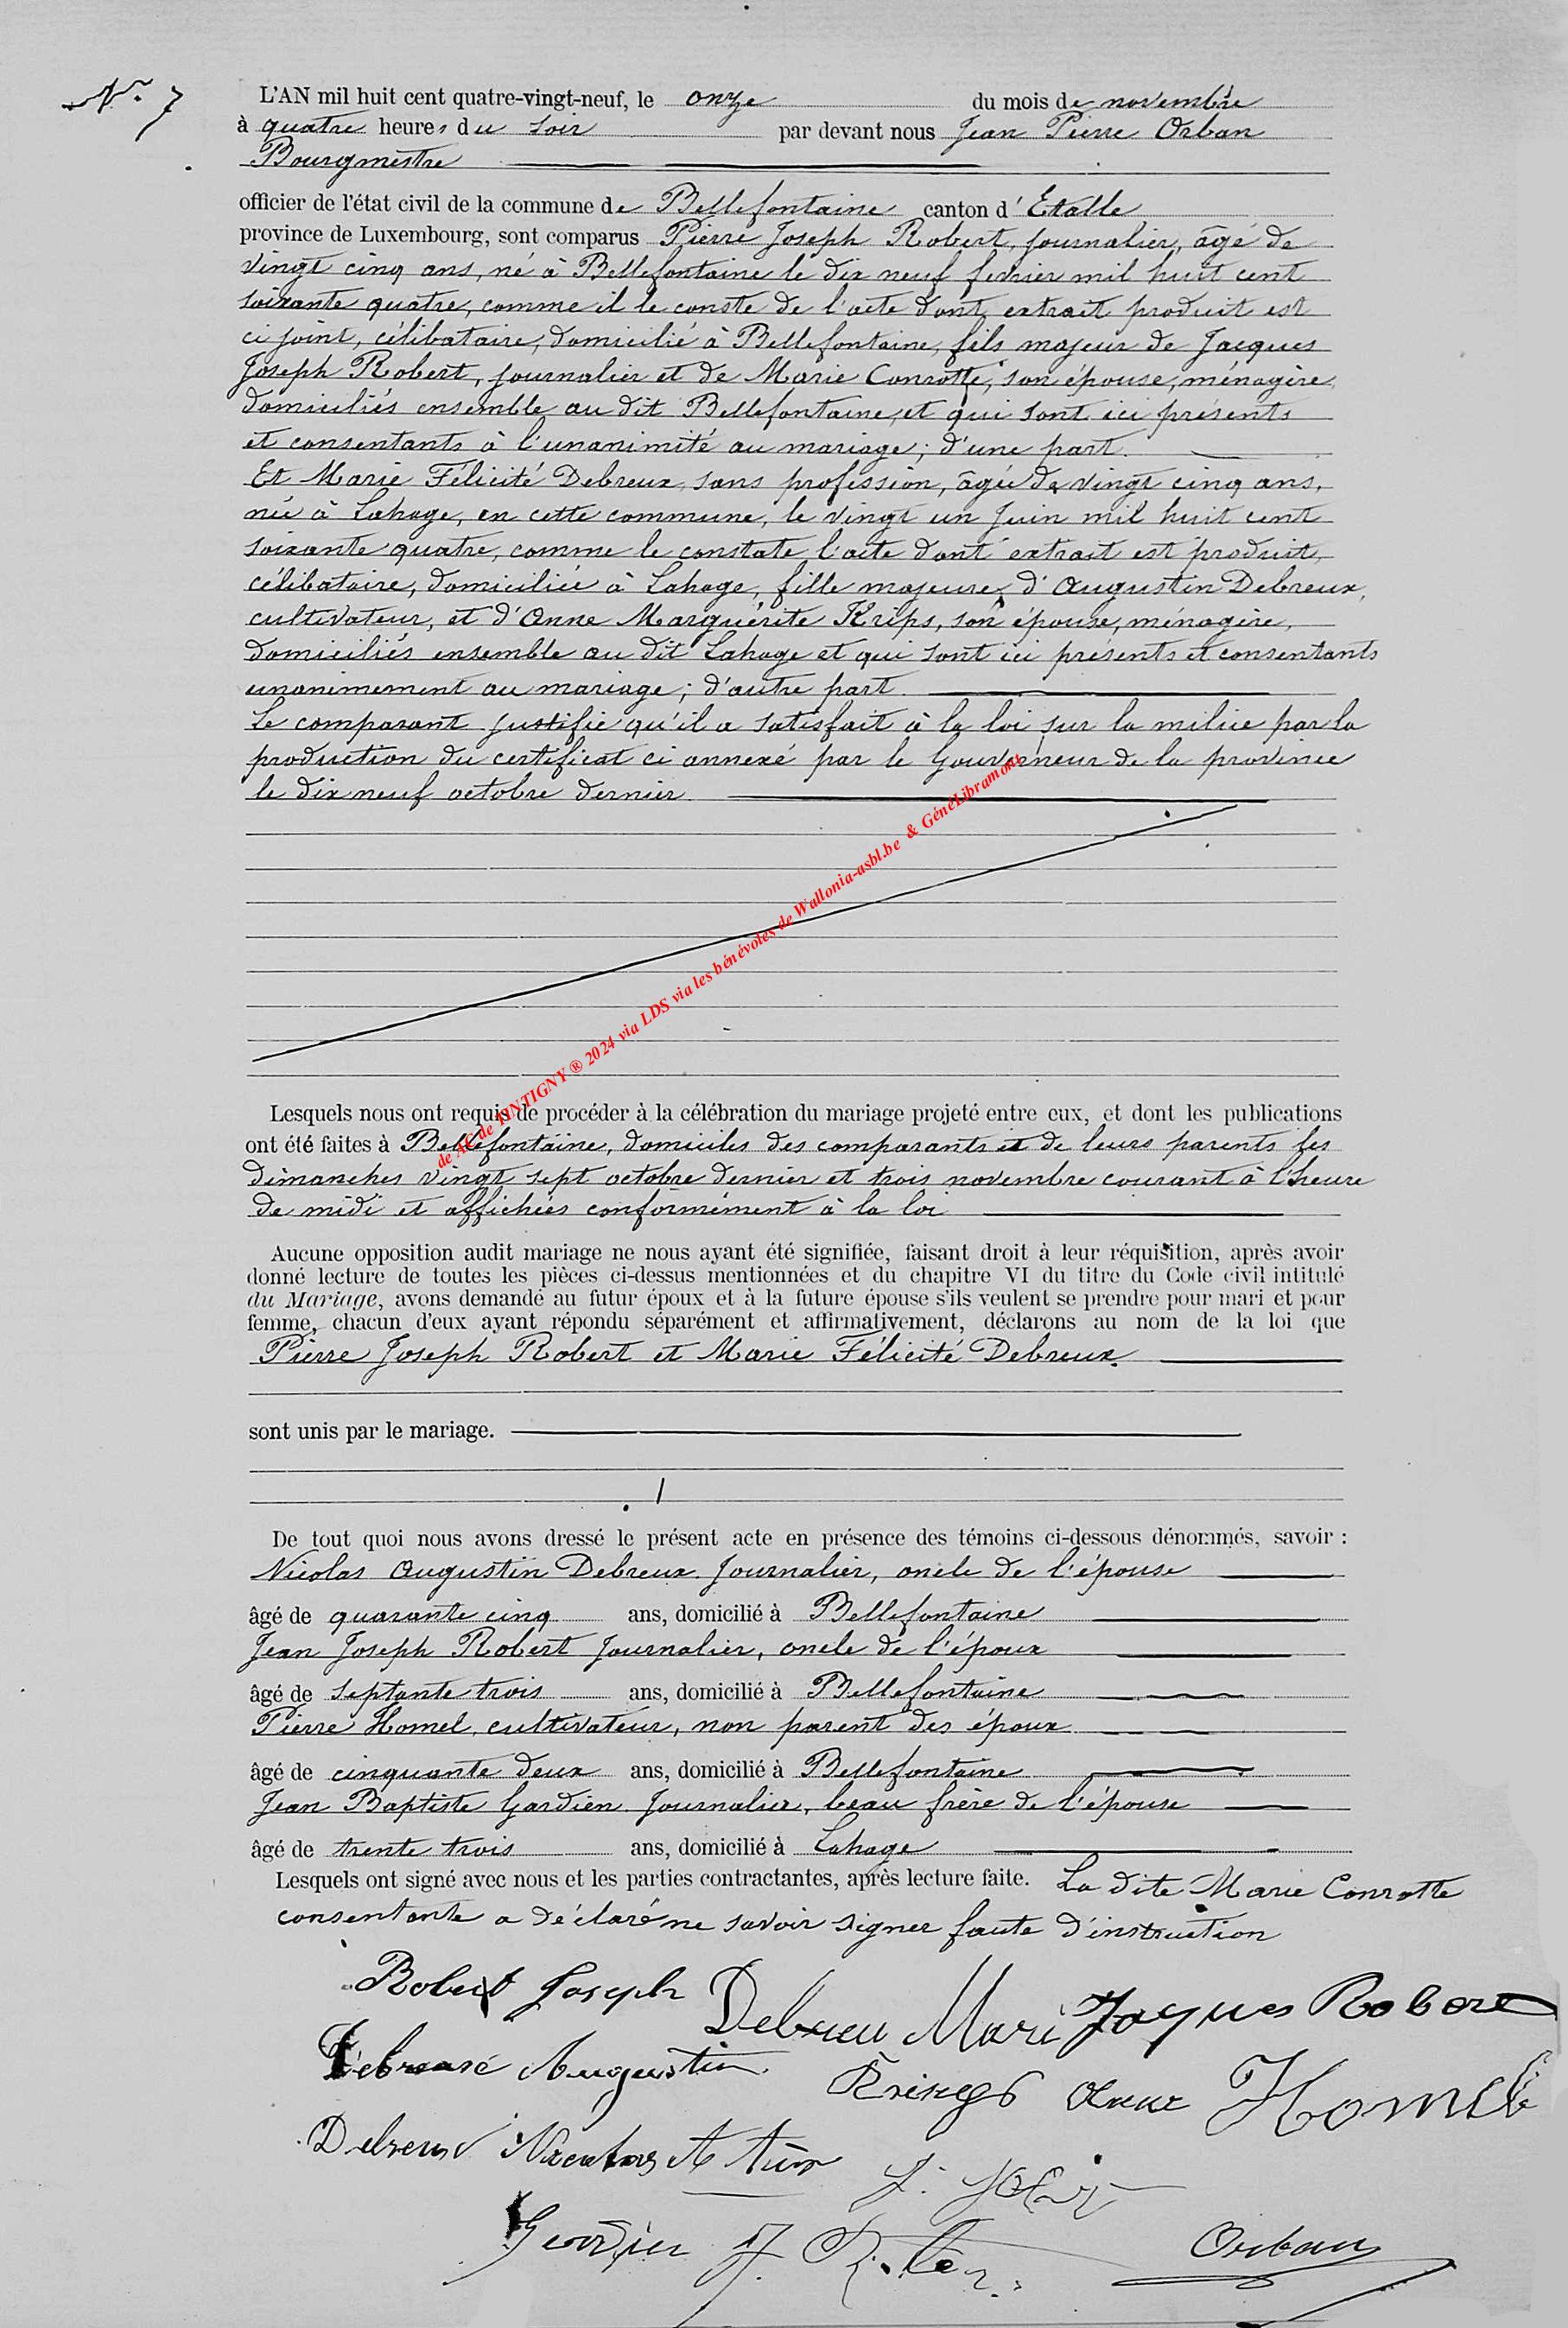 N° 7
L'AN mil huit cent quatre-vingt-neuf, le onze du mois de novembre
à quatre heures du soir par devant nous Jean Pierre Orban
Bourgmestre
officier de l'état civil de la commune de Bellefontaine canton d'Etalle
province de Luxembourg, sont comparus Pierre Joseph Robert, journalier, âgé de
vingt cinq ans, né à Bellefontaine le dix neuf fevrier mil huit cent
soixante quatre, comme il le conste de l'acte dont extrait produit est
ci joint, célibataire, domicilié à Bellefontaine, fils majeur de Jacques
Joseph Robert, journalier et de Marie Conrotte, son épouse, ménagère,
domiciliés ensemble au dit Bellefontaine, et qui sont ici présents
et consentants à l'unanimité au mariage; d'une part.
Et Marie Félicité Debreux, sans profession, âgée de vingt cinq ans,
née à Lahage, en cette commune, le vingt un Juin mil huit cent
soixante quatre, comme le constate l'acte dont extrait est produit,
célibataire, domiciliée à Lahage, fille majeure, d'Augustin Debreux,
cultivateur, et d'Anne Marguérite Krips, son épouse, ménagère,
domiciliés ensemble au dit Lahage et qui sont ici présents et consentants
unanimement au mariage; d'autre part.
Le comparant justifie qu'il a satisfait à la loi sur la milice par la
production du certificat ci annexé par le Gouverneur de la province
le dix neuf octobre dernier.
de AC de TINTIGNY ® 2024 via LDS via les bénévoles de Wallonia-asbl.be & GénéLibramont
Lesquels nous ont requis de procéder à la célébration du mariage projeté entre eux, et dont les publications
ont été faites à Bellefontaine, domiciles des comparants et de leurs parents les
dimanches vingt sept octobre dernier et trois novembre courant à l'heure
de midi et affichées conformément à la loi
Aucune opposition audit mariage ne nous ayant été signifiée, faisant droit à leur réquisition, après avoir
donné lecture de toutes les pièces ci-dessus mentionnées et du chapitre VI du titre du Code civil intitulé
du Mariage, avons demandé au futur époux et à la future épouse s'ils veulent se prendre pour mari et pour
femme, chacun d'eux ayant répondu séparément et affirmativement, déclarons au nom de la loi que
Pierre Joseph Robert et Marie Félicité Debreux
sont unis par le mariage.
De tout quoi nous avons dressé le présent acte en présence des témoins ci-dessous dénommés, savoir :
Nicolas Augustin Debreux Journalier, oncle de l'épouse
âgé de quarante cinq ans, domicilié à Bellefontaine
Jean Joseph Robert Journalier, oncle de l'époux
âgé de septante trois ans, domicilié à Bellefontaine
Pierre Homel, cultivateur, non parent des époux
âgé de cinquante deux ans, domicilié à Bellefontaine
Jean Baptiste Gardien Journalier, beau frère de l'épouse
âgé de trente trois ans, domicilié à Lahage
Lesquels ont signé avec nous et les parties contractantes, après lecture faite. La dite Marie Conrotte
consentante a déclaré ne savoir signer faute d'instruction
Robert Joseph Debreu Mari Jaques Robert
Augustin Anne Homel
Debreux Nicolas
J. Orban